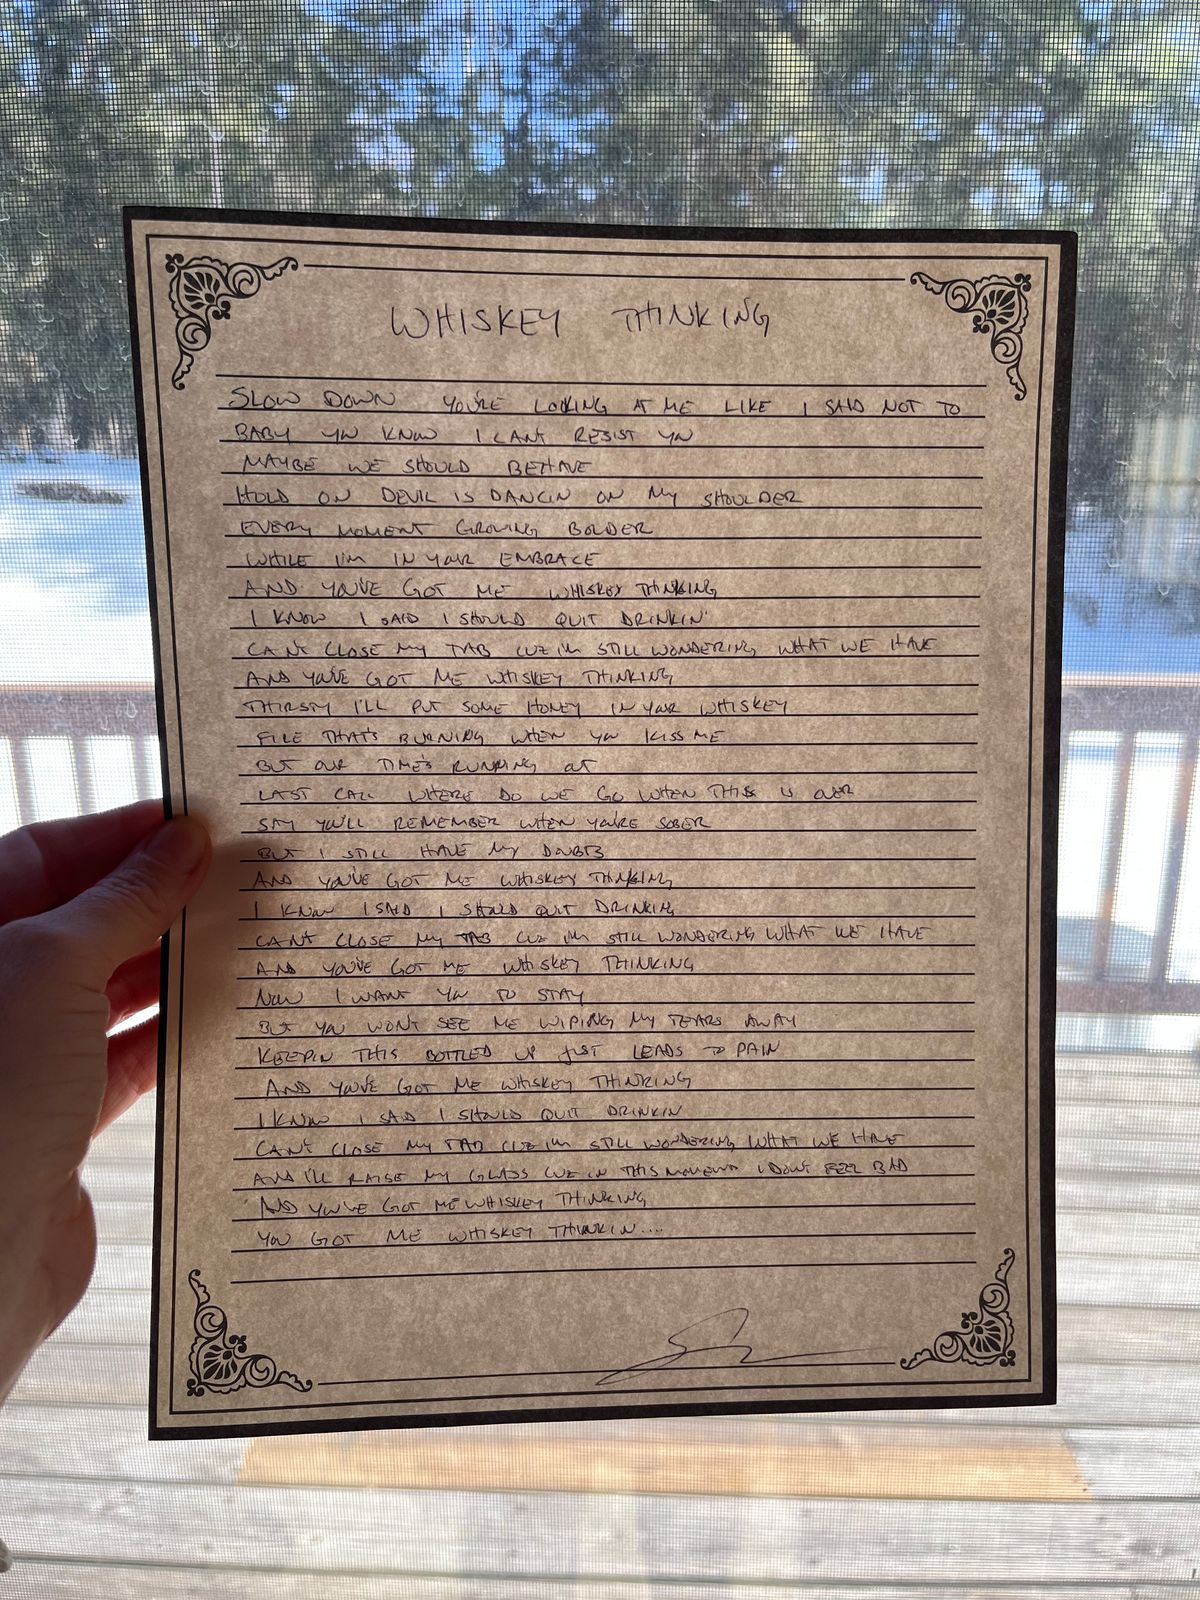 WHISKEY THINKING
SLOW DOWN YOU'RE LOOKING AT ME LIKE I SAID NOT TO
BABY YOU KNOW I CANT RESIST YOU
MAYBE WE SHOULD BEHAVE
HOLD ON DEVIL IS DANCIN ON MY SHOULDER
EVERY MOMENT GROWING BOLDER
WHILE I'M IN YOUR EMBRACE
AND YOU'VE GOT ME WHISKEY THINKING
I KNOW I SAID I SHOULD QUIT DRINKIN'
CAN'T CLOSE MY TAB CUZ I'M STILL WONDERING WHAT WE HAVE
AND YOU'VE GOT ME WHISKEY THINKING
THIRSTY I'LL PUT SOME HONEY IN YOUR WHISKEY
FIRE THAT'S BURNING WHEN YOU KISS ME
BUT OUR TIME'S RUNNING OUT
LAST CALL WHERE DO WE GO WHEN THIS IS OVER
SAY YOU'LL REMEMBER WHEN YOU'RE SOBER
BUT I STILL HAVE MY DOUBTS
AND YOU'VE GOT ME WHISKEY THINKING
I KNOW I SAID I SHOULD QUIT DRINKING
CAN'T CLOSE MY TAB CUZ I'M STILL WONDERING WHAT WE HAVE
AND YOU'VE GOT ME WHISKEY THINKING
NOW I WANT YOU TO STAY
BUT YOU WON'T SEE ME WIPING MY TEARS AWAY
KEEPIN THIS BOTTLED UP JUST LEADS TO PAIN
AND YOU'VE GOT ME WHISKEY THINKING
I KNOW I SAID I SHOULD QUIT DRINKIN
CAN'T CLOSE MY TAB CUZ I'M STILL WONDERING WHAT WE HAVE
AND I'LL RAISE MY GLASS CUZ IN THIS MOMENT I DON'T FEEL BAD
AND YOU'VE GOT ME WHISKEY THINKING
YOU GOT ME WHISKEY THINKIN....